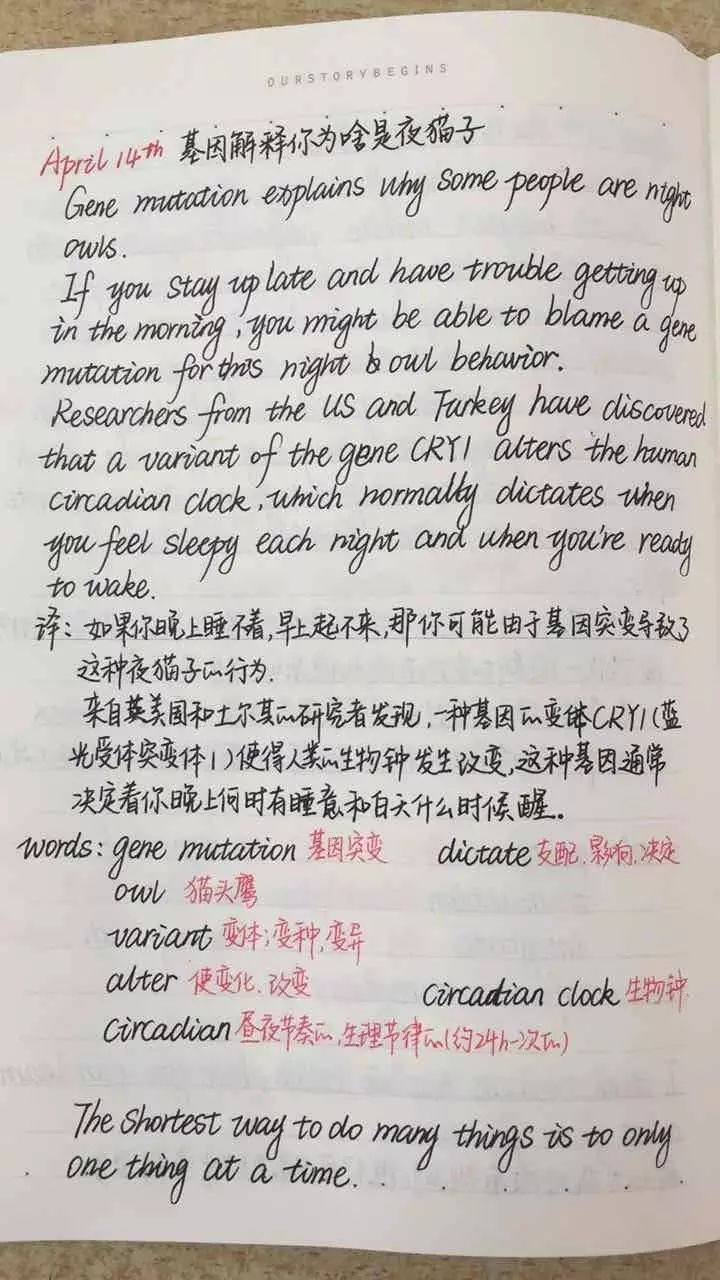 OURSTORYBEGINS
April 14th 基因解释你为啥是夜猫子
Gene mutation explains why some people are night
owls.
If you stay up late and have trouble getting up
in the morning, you might be able to blame a gene
mutation for this night owl behavior.
Researchers from the US and Turkey have discovered
that a variant of the gene CRY1 alters the human
circadian clock, which normally dictates when
you feel sleepy each night and when you're ready
to wake.
译: 如果你晚上睡不着,早上起不来,那你可能由于基因突变导致了
这种夜猫子的行为.
来自英美国和土尔其的研究者发现,一种基因的变体CRY1(蓝
光受体突变体1)使得人类的生物钟发生改变,这种基因通常
决定着你晚上何时有睡意和白天什么时候醒。
words: gene mutation 基因突变 dictate 支配.影响.决定
owl 猫头鹰
variant 变体;变种,变异
alter 使变化.改变 circadian clock 生物钟.
circadian 昼夜节奏的,生理节律的(约24h一次的)
The shortest way to do many things is to only
one thing at a time.